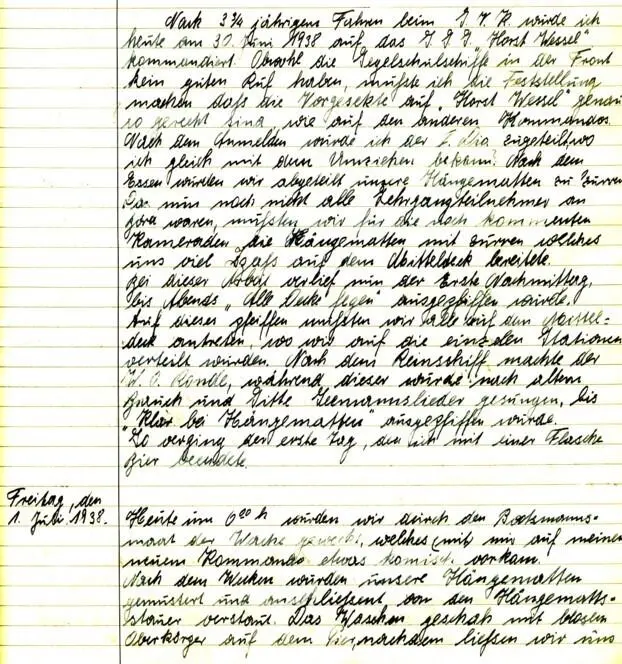 Nach 3 3/4 jährigem Fahren beim wurde ich
heute am 30. Juni 1938 auf das S.S.S. "Horst Wessel"
kommandiert. Obwohl die Segelschulschiffe in der Front
kein guten Ruf haben, mußte ich die Feststellung
machen daß die Vorgesetzte auf "Horst Wessel" genau
so gerecht sind, wie auf den anderen Kommandos.
Nach dem Anmelden wurde ich der zugeteilt, wo
ich gleich mit dem Umziehen bekam. Nach dem
Essen wurden wir abgeteilt unsere Hängematten zu zurren.
Da nun noch nicht alle Lehrgangteilnehmer an
Bord waren, mußten wir für die noch kommenten
Kameraden die Hängematten mit zurren welches
uns viel Spaß auf dem Mitteldeck bereitete.
Bei dieser Arbeit verlief nun der Erste Nachmittag,
bis Abends "Alle Decke fegen" ausgepfiffen wurde.
Auf dieses pfeiffen mußten wir alle auf den Mittel-
deck antreten, wo wir auf die einzelen Stationen
verteilt wurden. Nach dem Reinschiff machte der
W.O. Ronde, während dieser wurde nach altem
Brauch und Sitte Seemannslieder gesungen, bis
"Klar bei Hängematten" ausgepfiffen wurde.
So verging der erste Tag, den ich mit einer Flasche
Bier beendete.
Freitag, den
1. Juli 1938.
Heute um 6⁰⁰ h wurden wir durch den Bootsmanns-
maat der Wache geweckt, welches mir auf meinem
neuem Kommando etwas komisch vorkam.
Nach dem Wecken wurden unsere Hängematten
gemustert und anschließent von den Hängematts-
stauer verstaut. Das Waschen geschah mit blosen
Oberkörper auf dem nachdem ließen wir uns